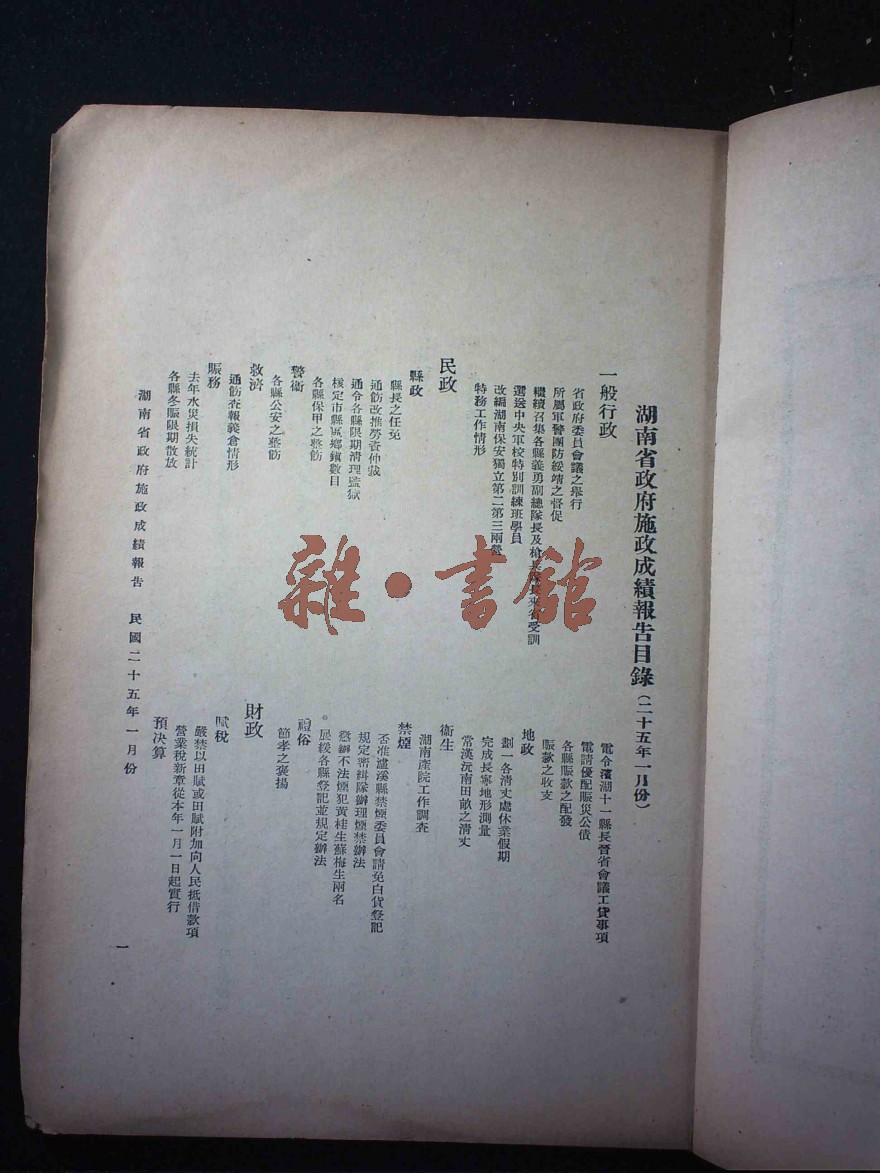 湖南省政府施政成績報告目錄(二十五年一月份)
一般行政
省政府委員會議之舉行
所屬軍警團防綏靖之督促
繼續召集各縣義勇副總隊長及槍兵隊長來省受訓
選送中央軍校特別訓練班學員
改編湖南保安獨立第二第三兩營
特務工作情形
民政
縣政
縣長之任免
通飭改推勞資仲裁
通令各縣限期清理監獄
核定市縣區鄉鎮數目
各縣保甲之整飭
警衛
各縣公安之整飭
救濟
通飭查報義倉情形
賑務
去年水災損失統計
各縣冬賑限期散放
電令濱湖十一縣長晉省會議工貸事項
電請優配賑災公債
各縣賑款之配發
賑款之收支
地政
劃一各清丈處休業假期
完成長寧地形測量
常漢沅南田畝之清丈
衛生
湖南產院工作調查
禁煙
否准瀘溪縣禁煙委員會請免白貨登記
規定密緝隊辦理煙禁辦法
懲辦不法煙犯黃桂生蘇梅生兩名
展緩各縣登記並規定辦法
禮俗
節孝之褒揚
財政
賦稅
嚴禁以田賦或田賦附加向人民抵借款項
營業稅新章從本年一月一日起實行
預決算
湖南省政府施政成績報告 民國二十五年一月份
一
雜·書館